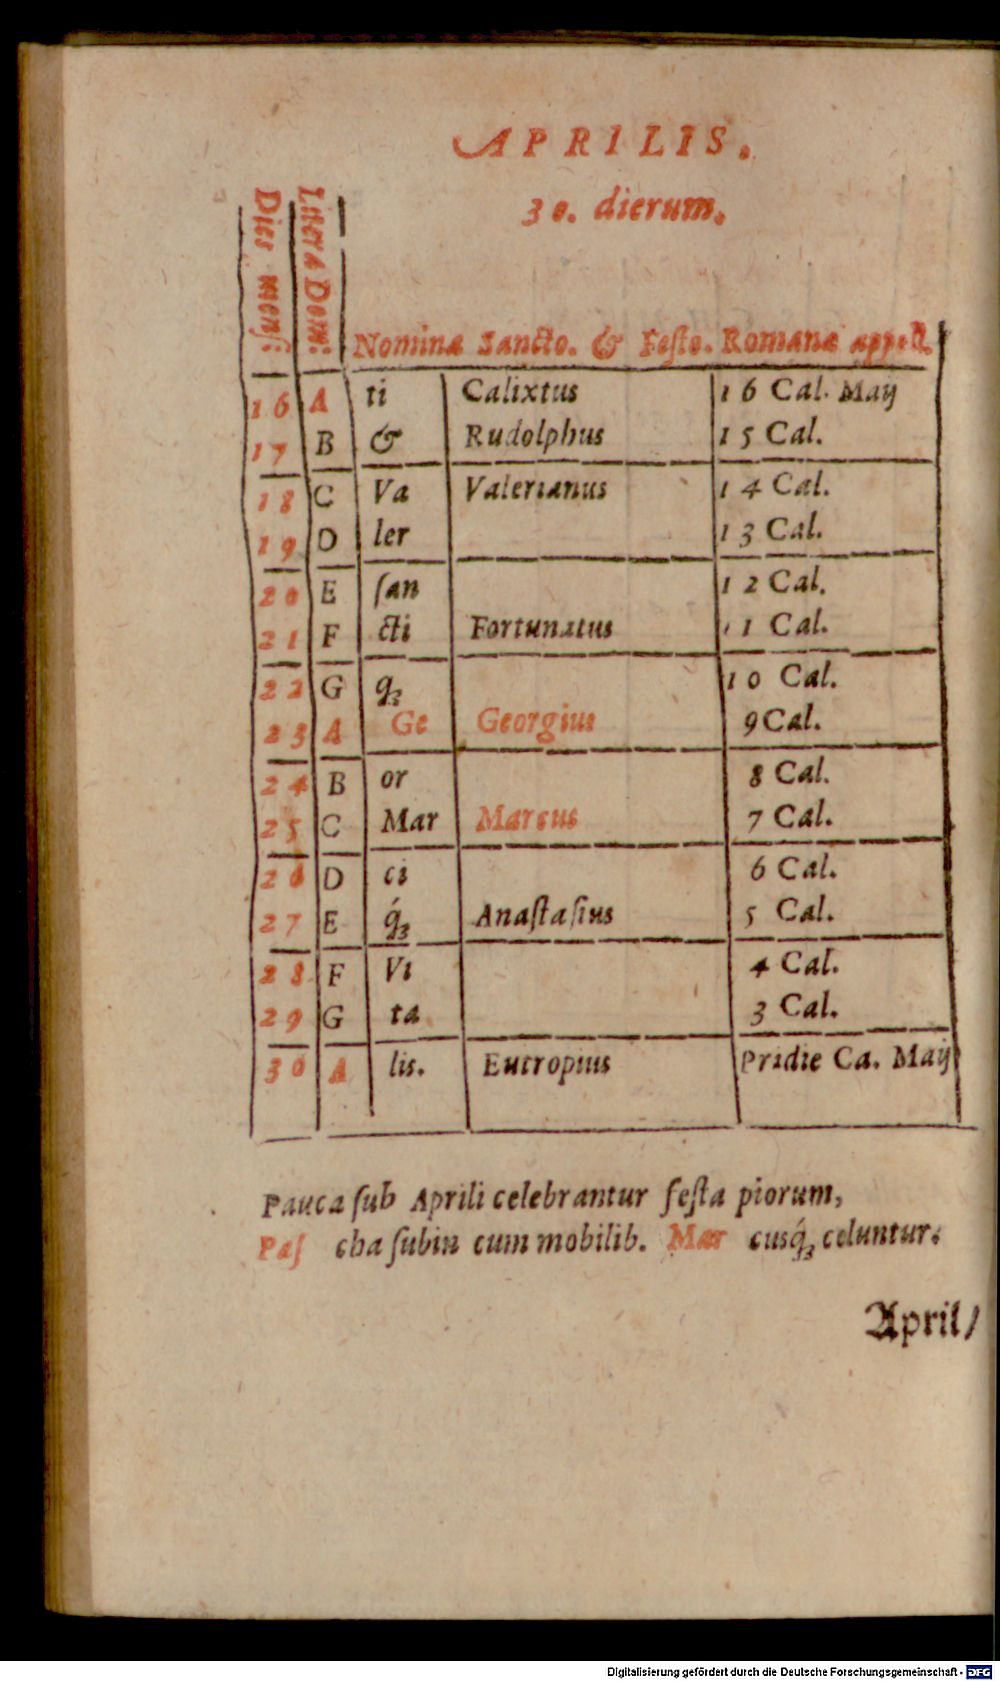 APRILIS.
30. dierum.
Dies mensſ:
Litera Dom:
Nomina Sancto. & Feſto. Romana appell.
16 A ti Calixtus 16 Cal. Maij
17 B & Rudolphus 15 Cal.
18 C Va Valerianus 14 Cal.
19 D ler 13 Cal.
20 E ſan 12 Cal.
21 F cti Fortunatus 11 Cal.
22 G qꝫ 10 Cal.
23 A Ge Georgius 9 Cal.
24 B or 8 Cal.
25 C Mar Marcus 7 Cal.
26 D ci 6 Cal.
27 E q́ꝫ Anaſtaſius 5 Cal.
28 F Vi 4 Cal.
29 G ta 3 Cal.
30 A lis. Eutropius Pridie Ca. Maij
Pauca ſub Aprili celebrantur feſta piorum,
Paſ cha ſubin cum mobilib. Mar cusq́ꝫ coluntur.
April/
Digitalisierung gefördert durch die Deutsche Forschungsgemeinschaft - DFG